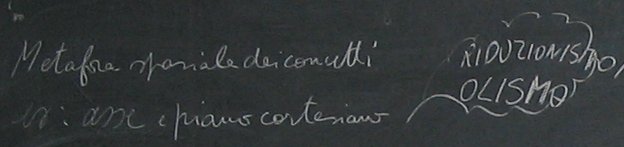 Metafora spaziale dei concetti
es: asse e piano cartesiano
RIDUZIONISMO/
OLISMO